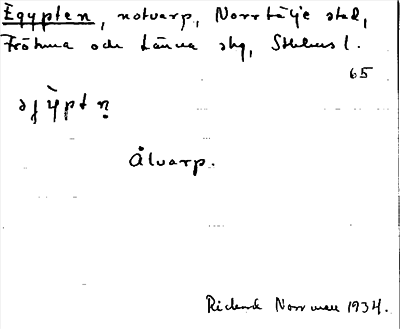 Egypten, notvarp, Norrtälje stad,
Frötuna och Länna skg, Sthlms l.
65
Ålvarp.
Rickard Norrman 1934.